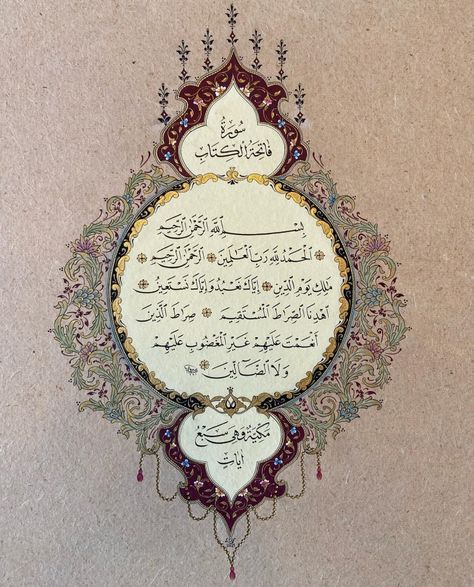 سُورَةُ
فَاتِحَةُ الْكِتَابِ
بِسْمِ اللَّهِ الرَّحْمٰنِ الرَّحِيمِ
الْحَمْدُ لِلَّهِ رَبِّ الْعَالَمِينَ الرَّحْمٰنِ الرَّحِيمِ
مَالِكِ يَوْمِ الدِّينِ إِيَّاكَ نَعْبُدُ وَإِيَّاكَ نَسْتَعِينُ
اهْدِنَا الصِّرَاطَ الْمُسْتَقِيمَ صِرَاطَ الَّذِينَ
أَنْعَمْتَ عَلَيْهِمْ غَيْرِ الْمَغْضُوبِ عَلَيْهِمْ
وَلَا الضَّالِّينَ
مَكِّيَّةٌ وَهِيَ سَبْعُ
اٰيَاتٍ